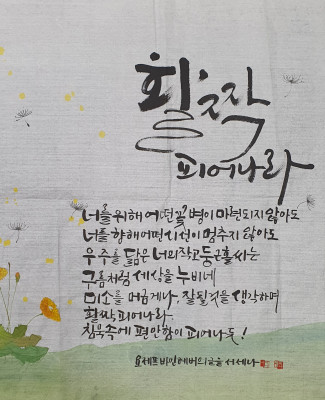 활짝
피어나라
너를 위해 어떤 꽃병이 마련되지 않아도
너를 향해 어떤 시선이 멈추지 않아도
우주를 닮은 너의 작고 둥근 홀씨는
구름처럼 세상을 누비네
미소를 머금게나. 잘될 것을 생각하며
활짝 피어나라.
침묵 속에 편안함이 피어나도!
요제프 비인헤버의 글을 서세나